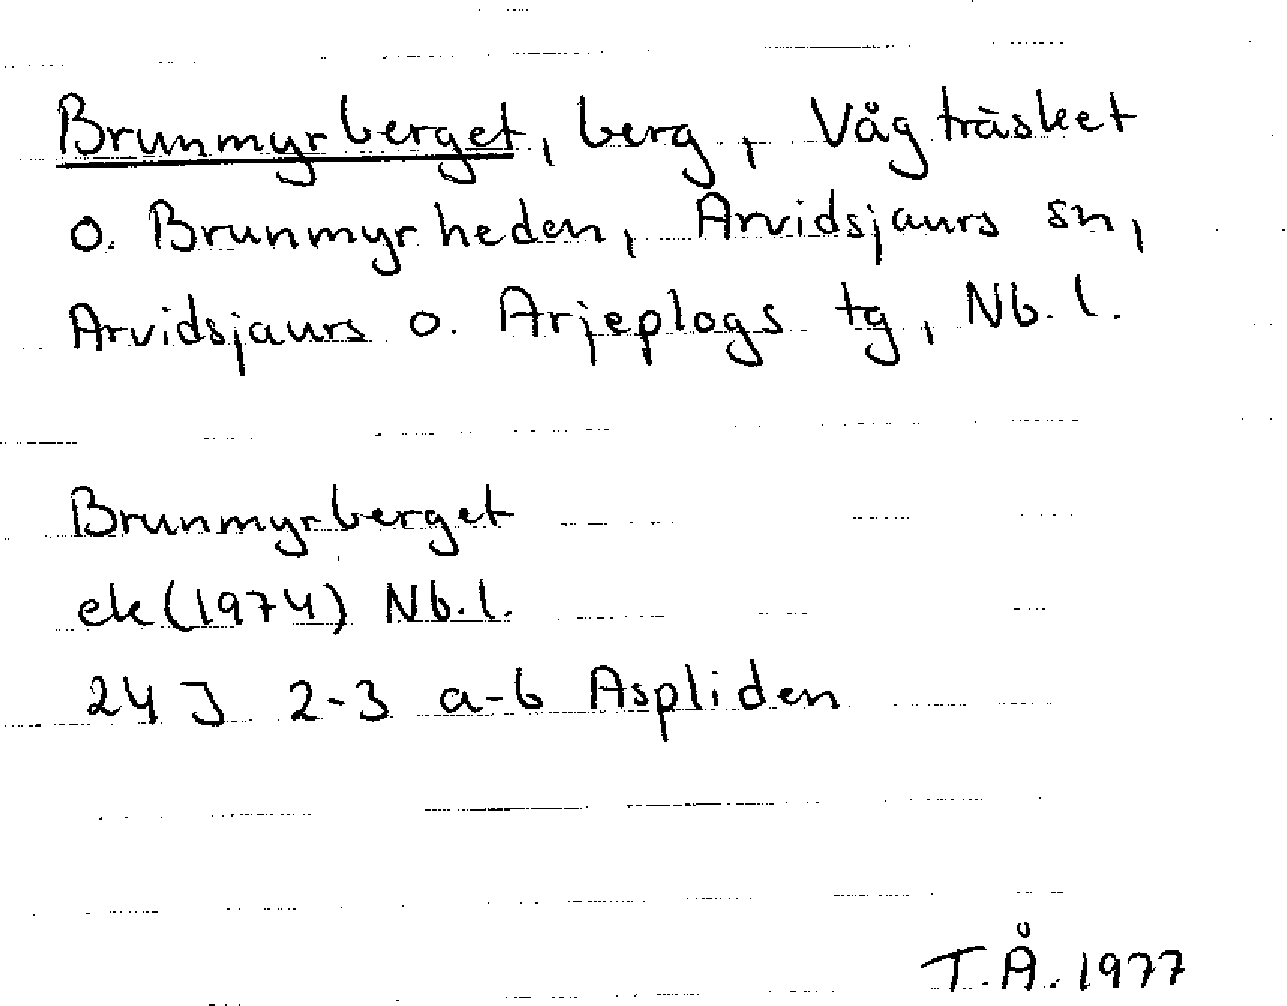 Brunmyrberget, berg, Vågträsket
o. Brunmyrheden, Arvidsjaurs sn,
Arvidsjaurs o. Arjeplogs tg, Nb. l.
Brunmyrberget
ek (1974) Nb. l.
24 J 2-3 a-b Aspliden
T.Å. 1977